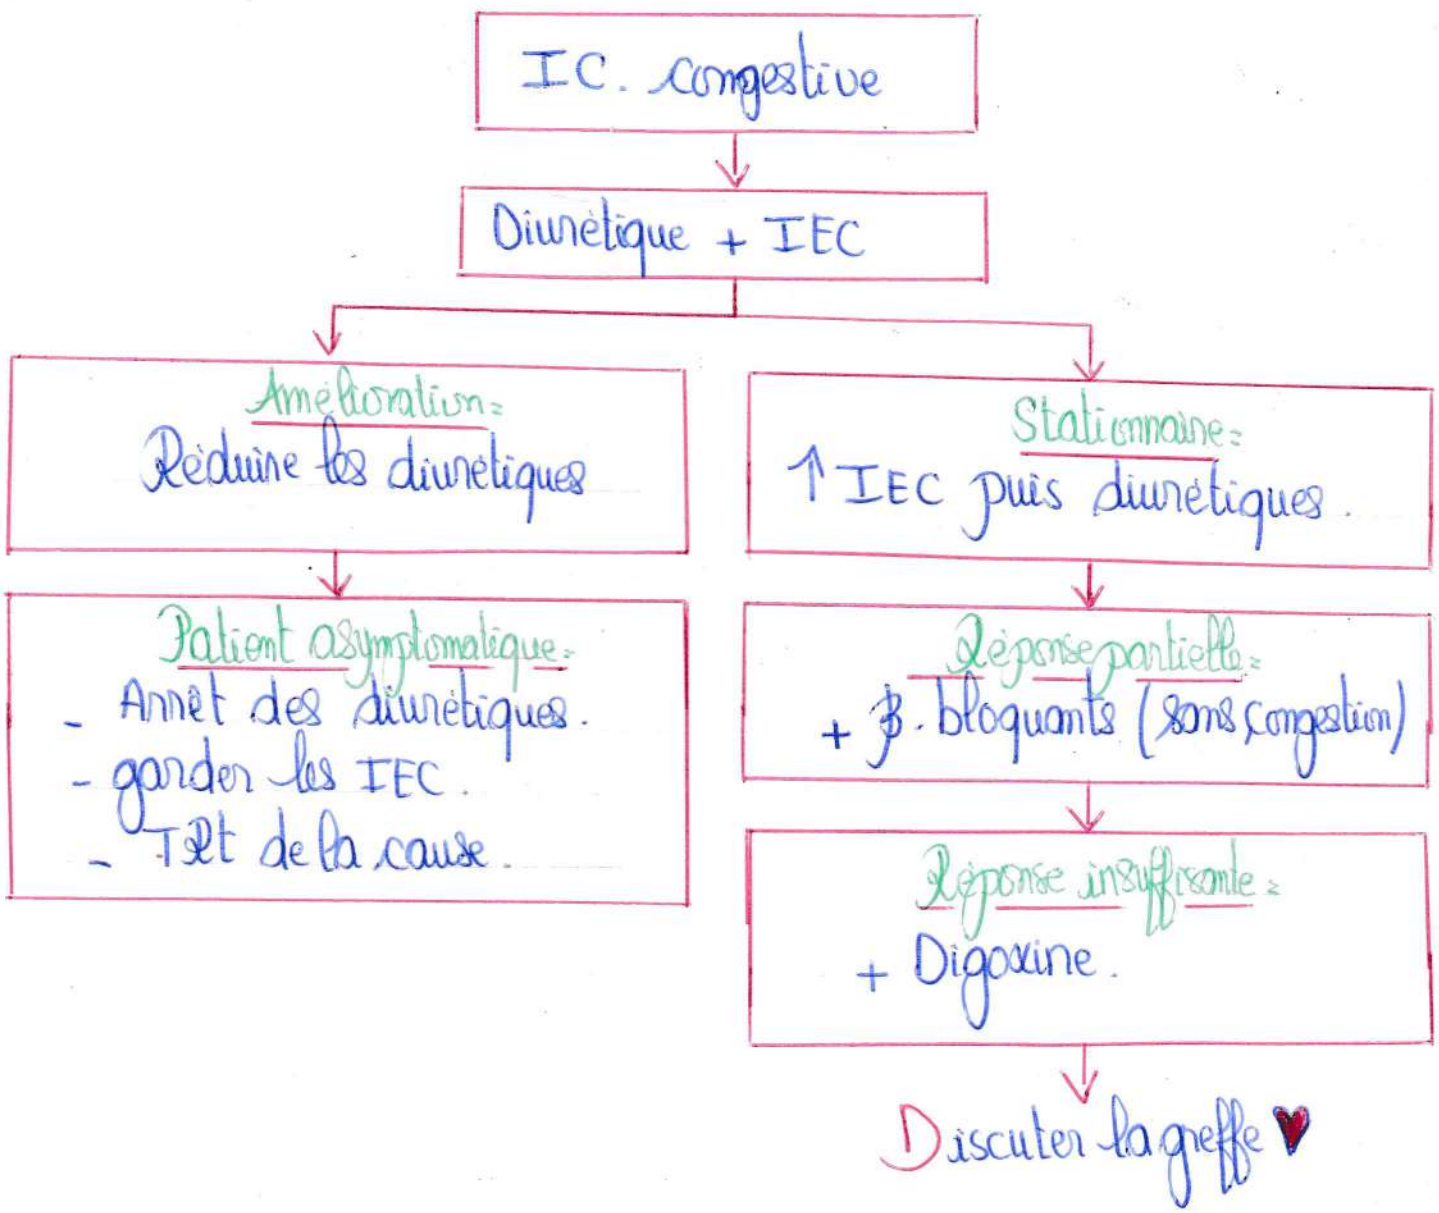 IC. congestive
Diurétique + IEC
Amélioration:
Réduire les diurétiques
Patient asymptomatique:
- Arrêt des diurétiques.
- garder les IEC.
- TRt de la cause.
Stationnaire:
↑ IEC puis diurétiques.
Réponse partielle:
+ β. bloquants (sans congestion)
Réponse insuffisante:
+ Digoxine.
Discuter la greffe ♥